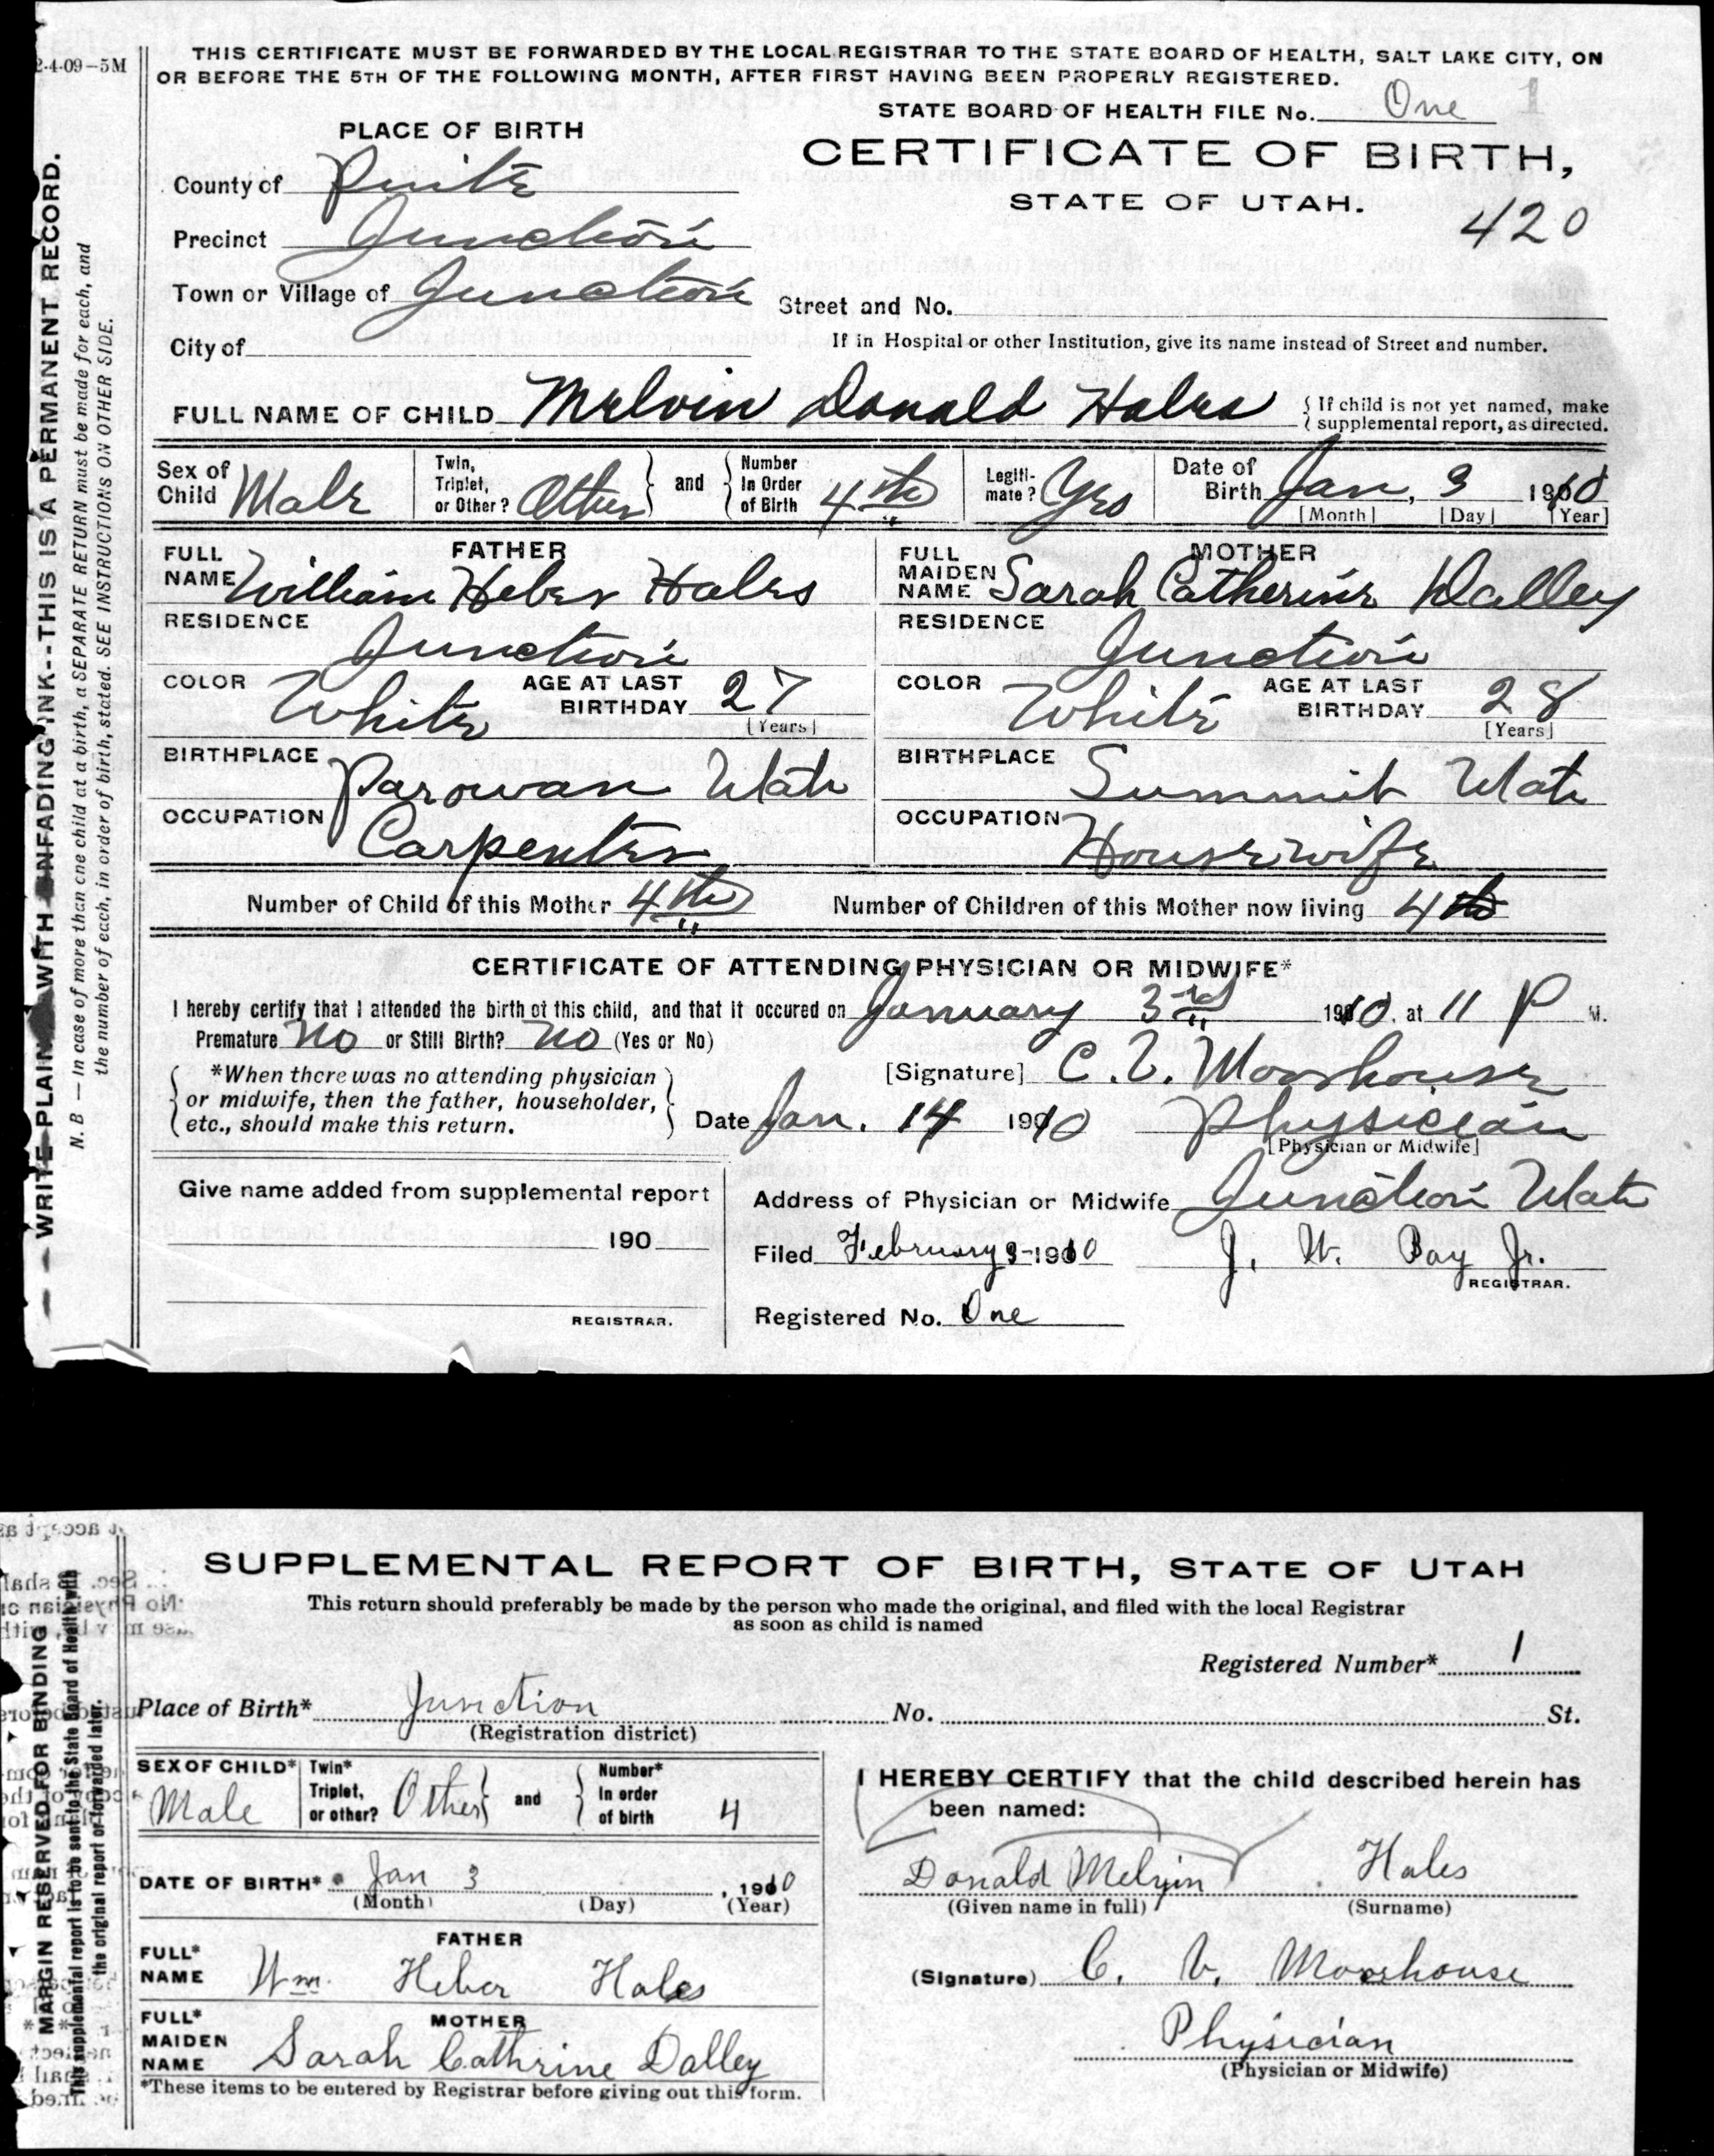 2-4-09-5M
THIS CERTIFICATE MUST BE FORWARDED BY THE LOCAL REGISTRAR TO THE STATE BOARD OF HEALTH, SALT LAKE CITY, ON
OR BEFORE THE 5TH OF THE FOLLOWING MONTH, AFTER FIRST HAVING BEEN PROPERLY REGISTERED.
STATE BOARD OF HEALTH FILE No. One 1
PLACE OF BIRTH
CERTIFICATE OF BIRTH,
STATE OF UTAH.
420
County of Piute
Precinct Junction
Town or Village of Junction
Street and No.
City of
If in Hospital or other Institution, give its name instead of Street and number.
FULL NAME OF CHILD Melvin Donald Hales
If child is not yet named, make
supplemental report, as directed.
Sex of Child Male
Twin, Triplet, or Other? Other and Number In Order of Birth 4th
Legitimate? Yes
Date of Birth Jan, 3 1910
[Month] [Day] [Year]
FATHER
FULL NAME William Heber Hales
RESIDENCE Junction
COLOR White AGE AT LAST BIRTHDAY 27
[Years]
BIRTHPLACE Parowan Utah
OCCUPATION Carpenter
MOTHER
FULL MAIDEN NAME Sarah Catherine Dalley
RESIDENCE Junction
COLOR White AGE AT LAST BIRTHDAY 28
[Years]
BIRTHPLACE Summit Utah
OCCUPATION Housewife
Number of Child of this Mother 4th
Number of Children of this Mother now living 4
CERTIFICATE OF ATTENDING PHYSICIAN OR MIDWIFE*
I hereby certify that I attended the birth of this child, and that it occured on January 3rd 1910, at 11 P M.
Premature No or Still Birth? No (Yes or No)
*When there was no attending physician
or midwife, then the father, householder,
etc., should make this return.
[Signature] C. V. Moorhouse
Date Jan. 14 1910 Physician
[Physician or Midwife]
Give name added from supplemental report
190
REGISTRAR.
Address of Physician or Midwife Junction Utah
Filed February 3-1910 J. W. Bay Jr.
REGISTRAR.
Registered No. One
WRITE PLAINLY WITH UNFADING INK--THIS IS A PERMANENT RECORD.
N. B — In case of more than one child at a birth, a SEPARATE RETURN must be made for each, and
the number of each, in order of birth, stated. SEE INSTRUCTIONS ON OTHER SIDE.
SUPPLEMENTAL REPORT OF BIRTH, STATE OF UTAH
This return should preferably be made by the person who made the original, and filed with the local Registrar
as soon as child is named
Registered Number* 1
Place of Birth* Junction No. St.
(Registration district)
SEX OF CHILD* Male
Twin* Triplet, or other? Other and Number* In order of birth 4
DATE OF BIRTH* Jan 3, 1910
(Month) (Day) (Year)
FATHER
FULL* NAME Wm. Heber Hales
MOTHER
FULL* MAIDEN NAME Sarah Cathrine Dalley
*These items to be entered by Registrar before giving out this form.
I HEREBY CERTIFY that the child described herein has
been named:
Donald Melvin Hales
(Given name in full) (Surname)
(Signature) C. V. Moorhouse
Physician
(Physician or Midwife)
MARGIN RESERVED FOR BINDING
This supplemental report is to be sent to the State Board of Health with
the original report or forwarded later.